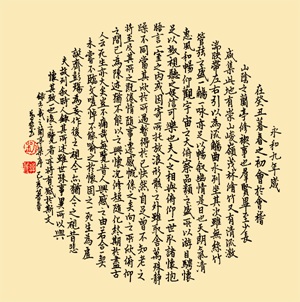 永和九年歲
在癸丑暮春之初會於會稽
山陰之蘭亭修禊事也群賢畢至少長
咸集此地有崇山峻嶺茂林脩竹又有清流激
湍映帶左右引以為流觴曲水列坐其次雖無絲竹
管弦之盛一觴一詠亦足以暢敘幽情是日也天朗氣清
惠風和暢仰觀宇宙之大俯察品類之盛所以遊目騁懷
足以極視聽之娛信可樂也夫人之相與俯仰一世或取諸懷抱
晤言一室之內或因寄所託放浪形骸之外雖取舍萬殊靜
躁不同當其欣於所遇暫得於己快然自足曾不知老之
將至及其所之既倦情隨事遷感慨係之矣向之所欣俯仰
之間已為陳迹猶不能不以之興懷況脩短隨化終期於盡古
人云死生亦大矣豈不痛哉每覽昔人興感之由若合一契
未嘗不臨文嗟悼不能喻之於懷固知一死生為虛
誕齊彭殤為妄作後之視今亦猶今之視昔悲
夫故列敘時人錄其所述雖世殊事異所以興
懷其致一也後之覽者亦將有感於斯文